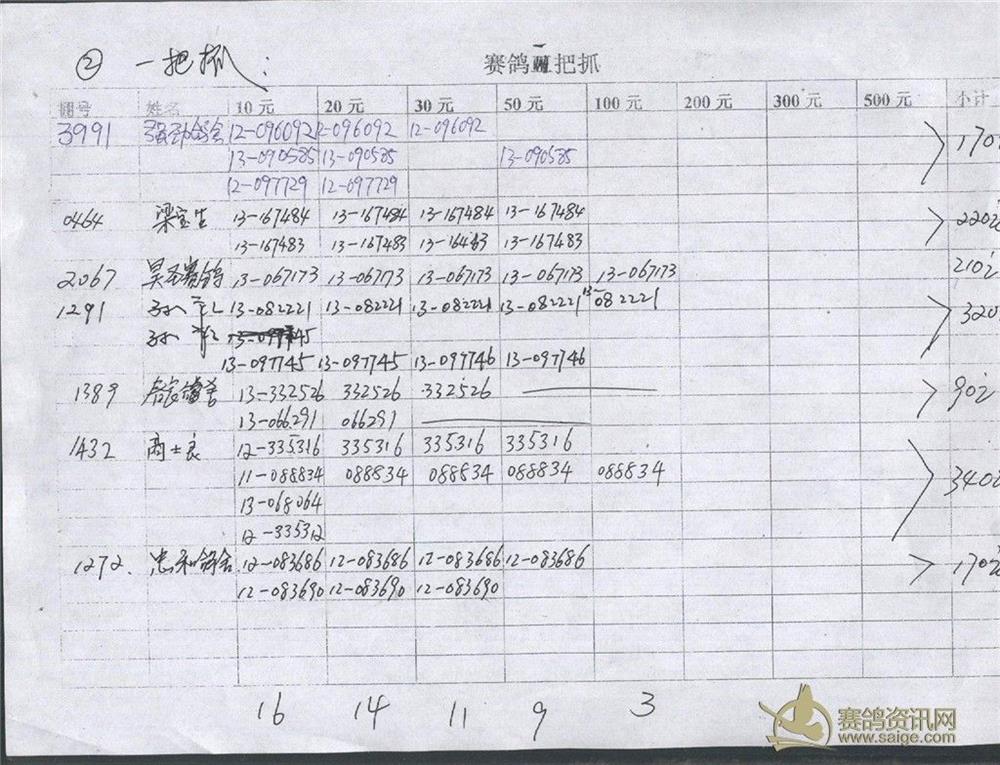 ② 一把抓:
赛鸽 一把抓
棚号 姓名 10元 20元 30元 50元 100元 200元 300元 500元 小计
3991 强劲鸽舍 12-096092 12-096092 12-096092
13-090585 13-090585 13-090585 170
12-097729 12-097729
0464 梁宝生 13-167484 13-167484 13-167484 13-167484 220
13-167483 13-167483 13-16483 13-167483
2067 昊圣赛鸽 13-067173 13-067173 13-067173 13-067173 13-067173 210
1291 13-082221 13-082221 13-082221 13-082221 13-082221 320
13-097745
13-097745 13-097745 13-097746 13-097746
1389 13-332526 332526 332526 90
13-066291 066291
1432 高士良 12-335316 335316 335316 335316
11-088834 088834 088834 088834 088834 340
13-068064
12-335312
1272. 忠和鸽舍 12-083686 12-083686 12-083686 12-083686 170
12-083690 12-083690 12-083690
16 14 11 9 3
赛鸽资讯网
www.saige.com